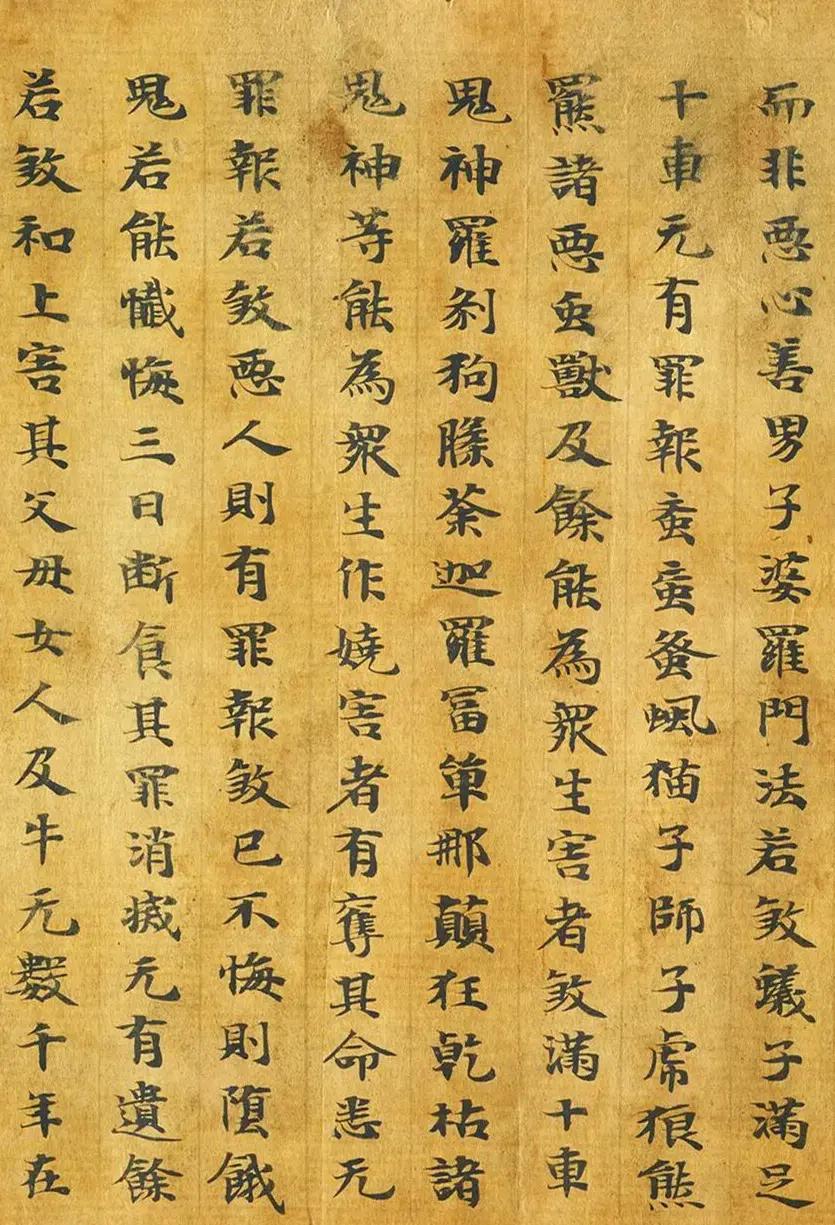 而非惡心善男子婆羅門法若煞蟻子滿足
十車无有罪報蚉蝱蚤虱猫子師子虎狼熊
羆諸惡虫獸及餘能為眾生害者煞滿十車
鬼神羅剎狗槃荼迦羅冨單那顛狂乾枯諸
鬼神等能為眾生作嬈害者有奪其命悉无
罪報若煞惡人則有罪報煞已不悔則堕餓
鬼若能懺悔三日断食其罪消滅无有遺餘
若煞和上害其父母女人及牛无數千年在